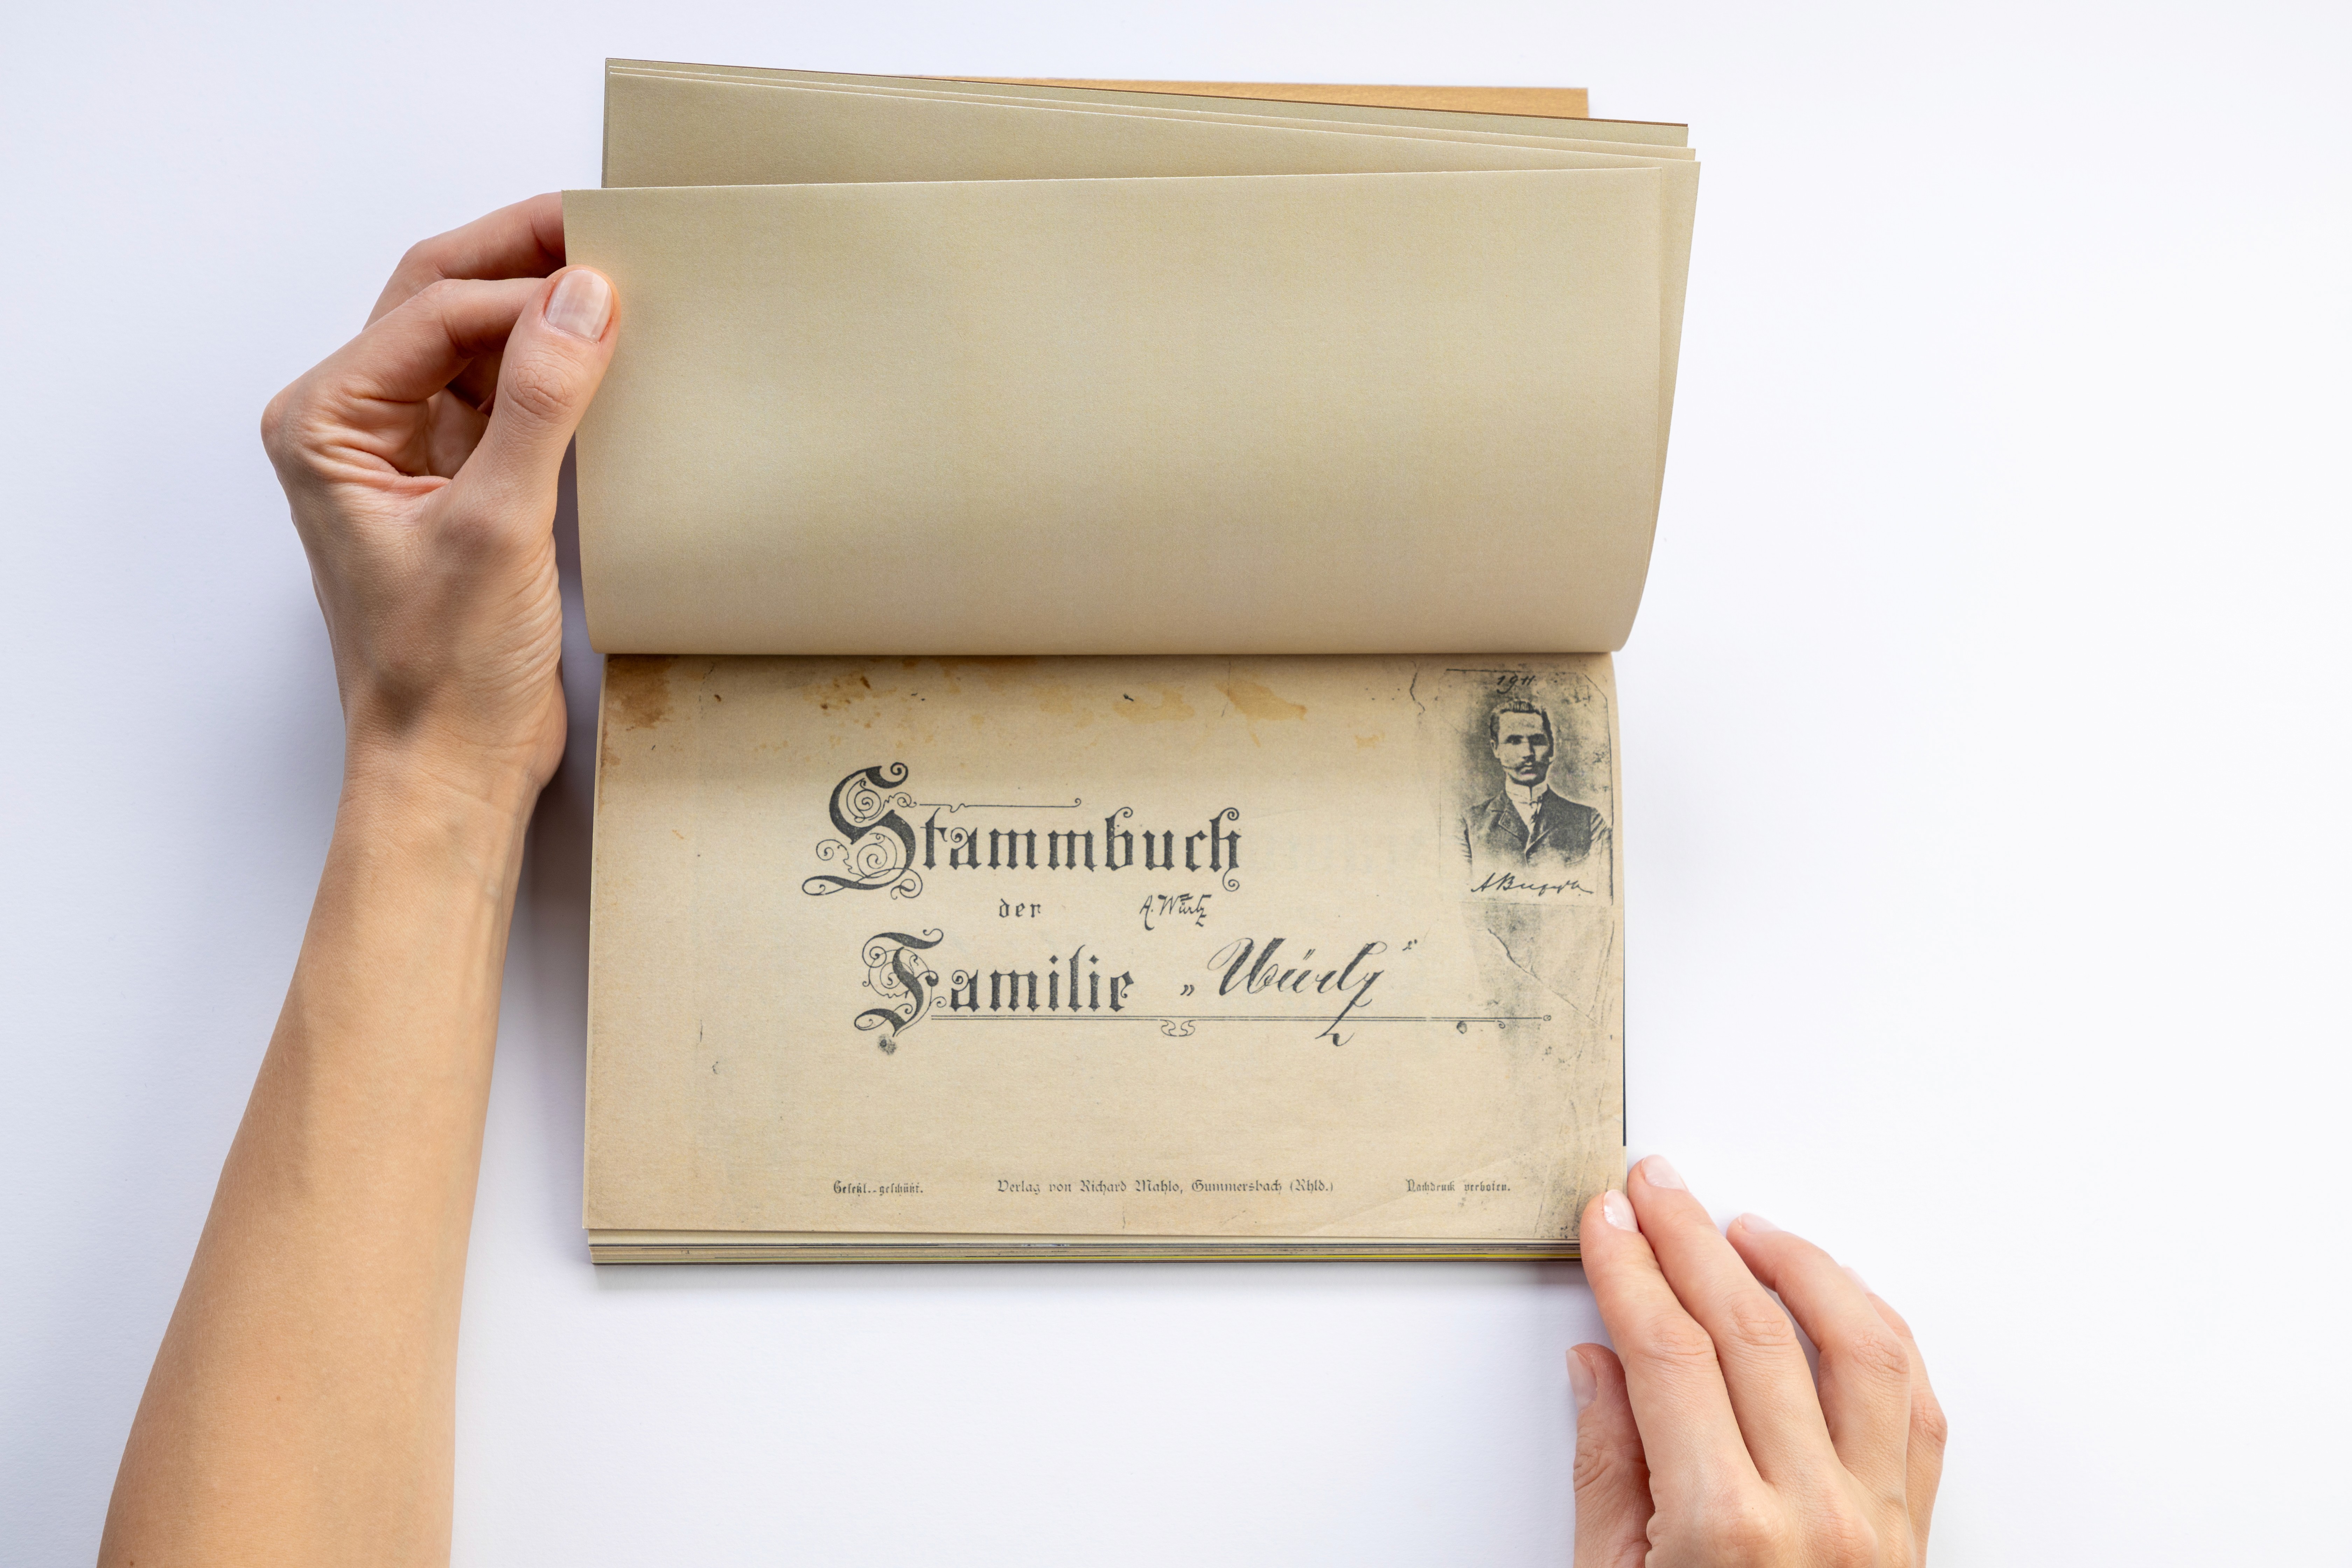 1911
Stammbuch
der A. Würtz
Familie „Würtz“
Gesetzl. geschützt. Verlag von Richard Mahlo, Gummersbach (Rhld.) Nachdruck verboten.